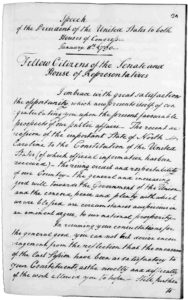 Speech
of the President of the United States to both
Houses of Congress
January 8th 1790.
Fellow Citizens of the Senate and
House of Representatives
I embrace with great satisfaction
the opportunity which now presents itself of con
gratulating you on the present favourable
prospects of our public affairs. The recent ac
cession of the important State of North
Carolina to the Constitution of the United
States (of which official information has been
received) the rising credit and respectability
of our Country. the general and increasing
good will towards the Government of the Union
and the concord, peace and plenty with which
we are blessed are circumstances auspicious
in an eminent degree to our national prosperity.
In resuming your consultations for
the general good, you can not but derive encou
ragement from the reflection that the measures
of the last Session have been as satisfactory to
your Constituents as the novelty and difficulty
of the work allowed you to hope. Still further